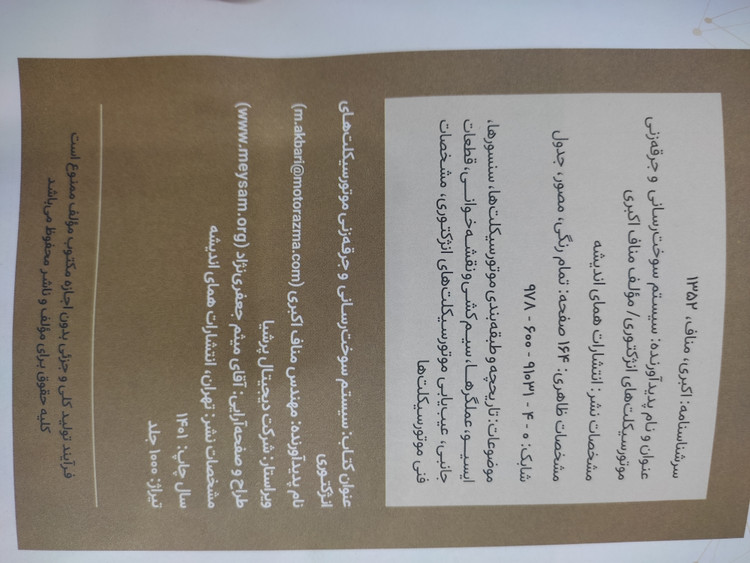 سرشناسنامه: اکبری، مناف، ۱۳۵۲
عنوان و نام پدیدآورنده: سیستم سوخت‌رسانی و جرقه‌زنی
موتورسیکلت‌های انژکتوری/ مؤلف مناف اکبری
مشخصات نشر: انتشارات همای اندیشه
مشخصات ظاهری: ۱۶۴ صفحه: تمام رنگی، مصور، جدول
شابک: ۰ - ۴ - ۹۱۰۳۱ - ۶۰۰ - ۹۷۸
موضوعات: تاریخچه و طبقه‌بندی موتورسیکلت‌ها، سنسورها،
ایسیو، عملگرها، سیم‌کشی و نقشه‌خوانی، قطعات
جانبی، عیب‌یابی موتورسیکلت‌های انژکتوری، مشخصات
فنی موتورسیکلت‌ها
عنوان کتاب: سیستم سوخت‌رسانی و جرقه‌زنی موتورسیکلت‌های
انژکتوری
نام پدیدآورنده: مهندس مناف اکبری (m.akbari@motorazma.com)
ویراستار: شرکت دیجیتال پرشیا
طراح و صفحه‌آرایی: آقای میثم جعفری‌نژاد (www.meysam.org)
مشخصات نشر: تهران، انتشارات همای اندیشه
سال چاپ: ۱۴۰۱
تیراژ: ۱۰۰۰ جلد
فرآیند تولید کلی و جزئی بدون اجازه مکتوب مؤلف ممنوع است
کلیه حقوق برای مؤلف و ناشر محفوظ می‌باشد